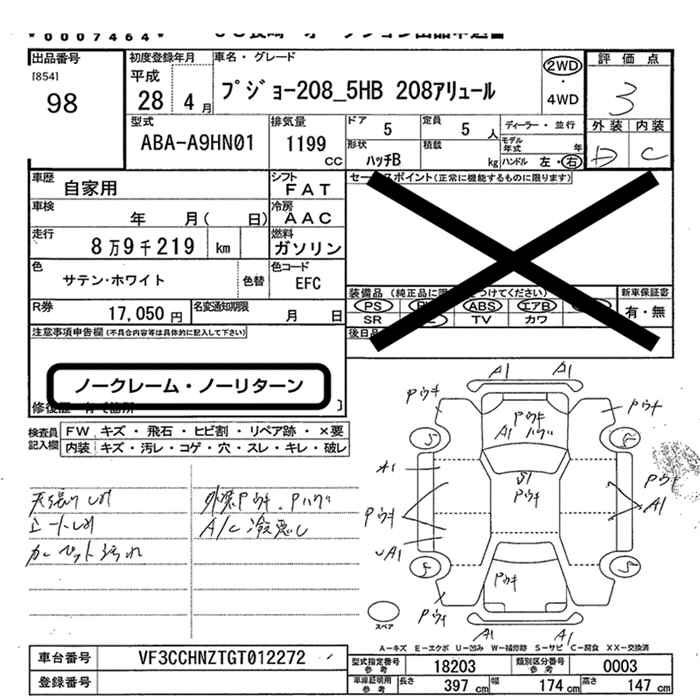 0007464
出品番号 初度登録年月 車名・グレード 評価点
[854] 平成 プジョー208_5HB 208アリュール 2WD 3
98 28 4月 ・ 4WD
型式 排気量 ドア 5 定員 5人 ディーラー・並行 外装 内装
ABA-A9HN01 1199 cc 形状 ハッチB 積載 kg モデル年式 年 ハンドル 左・右 D C
車歴 自家用 シフト FAT セールスポイント(正常に機能するものに限ります)
車検 年 月( 日) 冷房 AAC
走行 8万9千219 km 燃料 ガソリン
色 サテン・ホワイト 色替 色コード EFC
装備品 新車保証書
R券 17,050円 名変通知期限 月 日 PS ABS エアB 有・無
SR TV カワ
注意事項申告欄(不具合内容等は具体的に記入して下さい)
後日品
ノークレーム・ノーリターン
検査員記入欄 FW キズ・飛石・ヒビ割・リペア跡・×要
内装 キズ・汚レ・コゲ・穴・スレ・キレ・破レ
天張りしめ 外装Pウキ、Pハゲ
シートしめ A/C冷え悪し
カーペット汚れ
A1 A1
Pウキ Pウキ
Pウキ
A1 Pハゲ
S S
A1 S1 Pウキ
Pウキ
Pウキ A1
UA1
S Pウキ S
Pウキ
A1 A1
スペア
A-キズ E-エクボ U-凹み W-補修跡 S-サビ C-腐食 XX-交換済
車台番号 VF3CCHNZTGT012272 型式指定番号 参考 18203 類別区分番号 参考 0003
登録番号 車庫証明用 参考 長さ 397 cm 幅 174 cm 高さ 147 cm